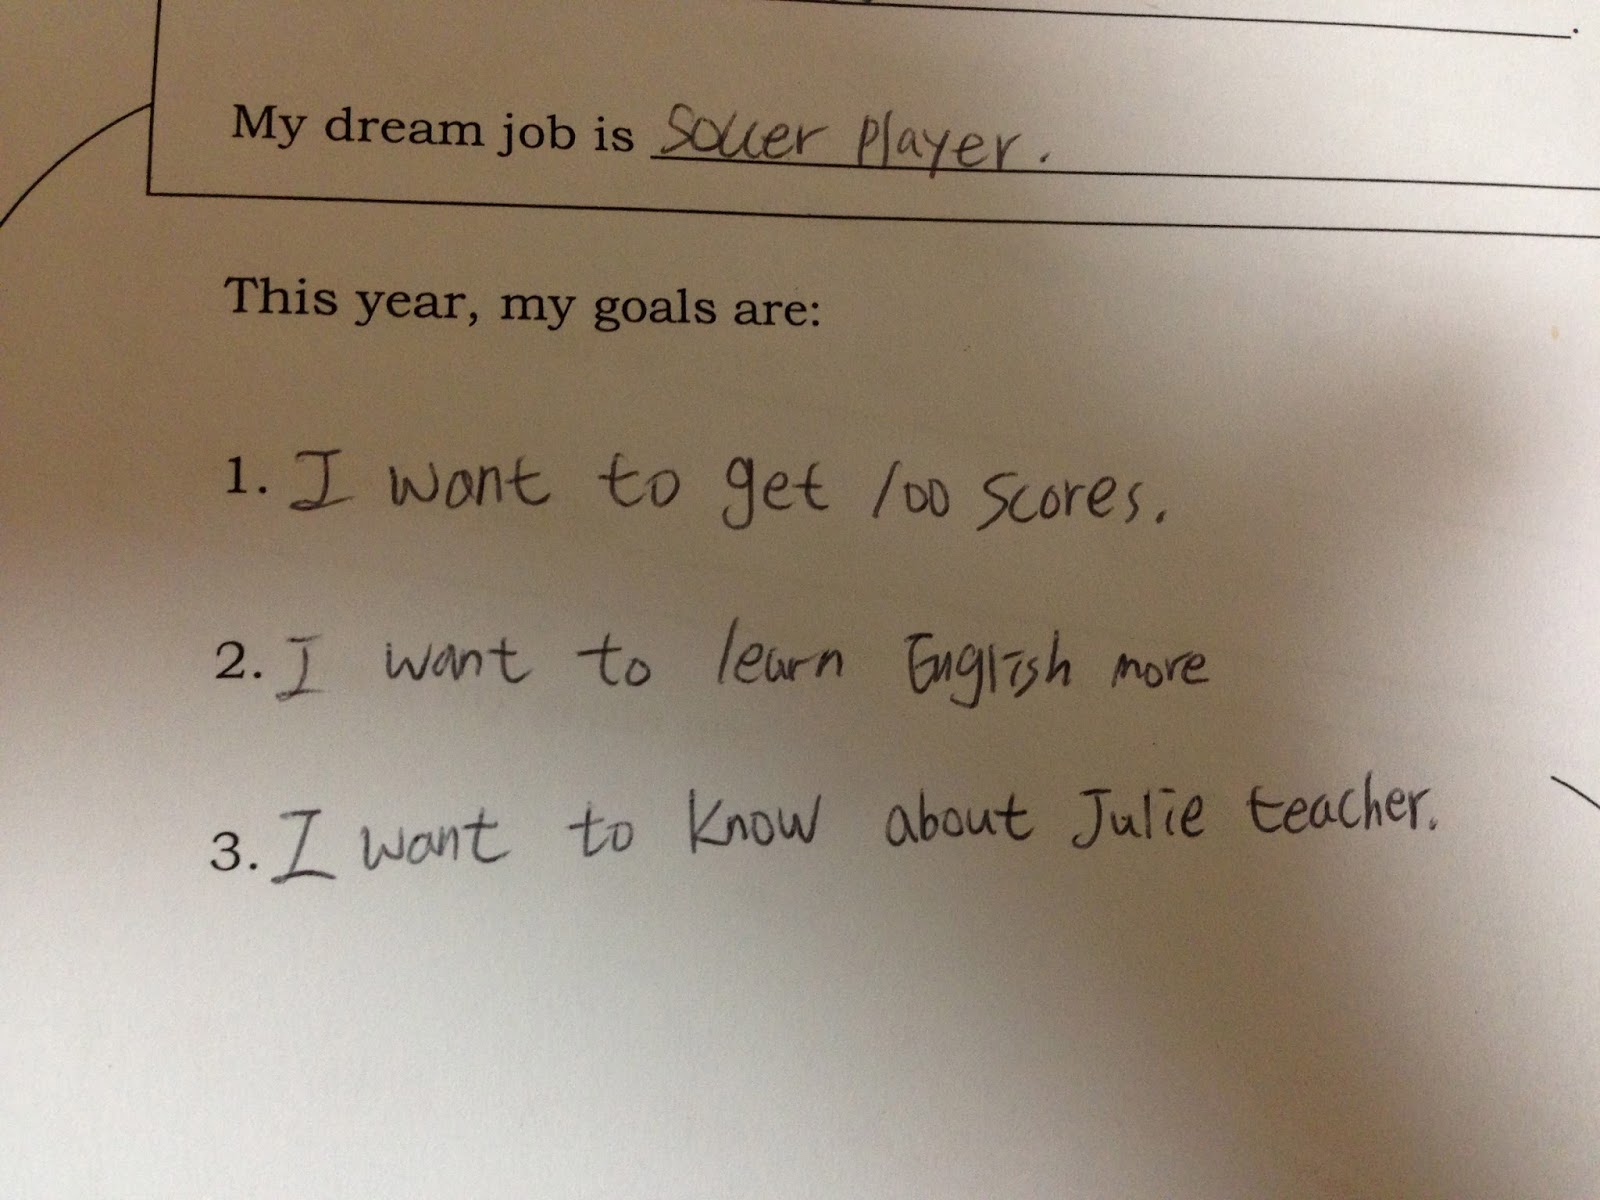 My dream job is Soccer Player.
This year, my goals are:
1. I want to get 100 scores.
2. I want to learn English more
3. I want to know about Julie teacher.